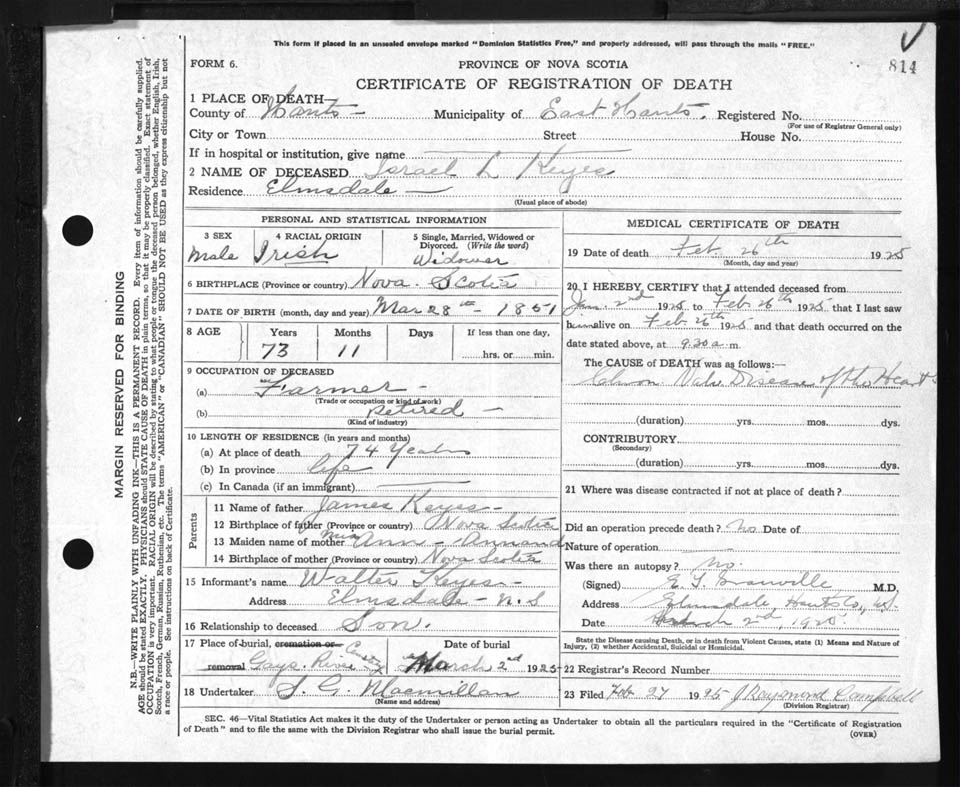 This form if placed in an unsealed envelope marked "Dominion Statistics Free," and properly addressed, will pass through the mails "FREE."
FORM 6.
PROVINCE OF NOVA SCOTIA
814
CERTIFICATE OF REGISTRATION OF DEATH
1 PLACE OF DEATH
County of Hants Municipality of East Hants. Registered No.
(For use of Registrar General only)
City or Town Street House No.
If in hospital or institution, give name
2 NAME OF DECEASED Israel L Keyes
Residence Elmsdale
(Usual place of abode)
PERSONAL AND STATISTICAL INFORMATION
3 SEX 4 RACIAL ORIGIN 5 Single, Married, Widowed or Divorced. (Write the word)
Male Irish Widower
6 BIRTHPLACE (Province or country) Nova Scotia
7 DATE OF BIRTH (month, day and year) Mar 28th - 1851
8 AGE Years Months If less than one day,
73 11 hrs. or min.
9 OCCUPATION OF DECEASED
(a) Farmer -
(Trade or occupation or kind of work)
(b) retired -
(Kind of industry)
10 LENGTH OF RESIDENCE (in years and months)
(a) At place of death 74 Years
(b) In province life
(c) In Canada (if an immigrant)
Parents
11 Name of father James Keyes -
12 Birthplace of father (Province or country) Nova Scotia
13 Maiden name of mother Ann - Annand
14 Birthplace of mother (Province or country) Nova Scotia
15 Informant's name Walter Keyes -
Address Elmsdale - N.S
16 Relationship to deceased Son.
17 Place of burial, cremation or removal Gays River Date of burial March 2nd 1925
18 Undertaker S. G. Macmillan
(Name and address)
MEDICAL CERTIFICATE OF DEATH
19 Date of death Feb. 26th 1925
(Month, day and year)
20 I HEREBY CERTIFY that I attended deceased from
Jan. 2nd 1925 to Feb 26th 1925 that I last saw
him alive on Feb. 26th 1925 and that death occurred on the
date stated above, at 9.30 a.m.
The CAUSE OF DEATH was as follows:
Disease of the Heart
(duration) yrs. mos. dys.
CONTRIBUTORY
(Secondary)
(duration) yrs. mos. dys.
21 Where was disease contracted if not at place of death?
Did an operation precede death? No Date of
Nature of operation
Was there an autopsy? No.
(Signed) M.D.
Address Elmsdale, Hants Co,
Date March 2nd 1925
State the Disease causing Death, or in death from Violent Causes, state (1) Means and Nature of Injury, (2) whether Accidental, Suicidal or Homicidal.
22 Registrar's Record Number
23 Filed Feb 27 1925 J Raymond Campbell
(Division Registrar)
SEC. 46—Vital Statistics Act makes it the duty of the Undertaker or person acting as Undertaker to obtain all the particulars required in the "Certificate of Registration
of Death" and to file the same with the Division Registrar who shall issue the burial permit.
(OVER)
MARGIN RESERVED FOR BINDING
N.B.—WRITE PLAINLY WITH UNFADING INK—THIS IS A PERMANENT RECORD. Every item of information should be carefully supplied.
AGE should be stated EXACTLY. PHYSICIANS should STATE CAUSE OF DEATH in plain terms, so that it may be properly classified. Exact statement of
OCCUPATION is very important. RACIAL ORIGIN will be described by stating to what people or tongue the deceased person belonged, whether English, Irish,
Scotch, French, German, Russian, Ruthenian, etc. The terms "AMERICAN" or "CANADIAN" SHOULD NOT BE USED as they express citizenship but not
a race or people. See instructions on back of Certificate.